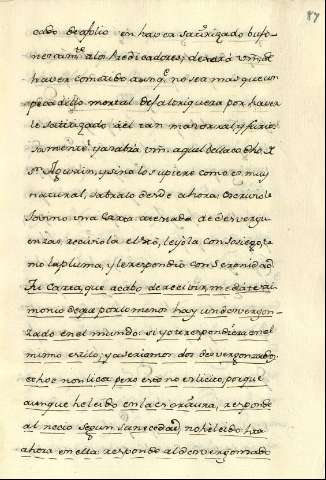 87
cado de aplio en haver satirizado bufo-
necam.te a los Predicadores; dexará vm. de
haver cometido aunq.e no sea mas que un
pecadillo mortal de faltriquera por haver
le satirizado á el tan mayoral, y furio-
samente? ya sabia vm. aquel bellaco dho. de
Sn. Agustin, y sino lo supiere como es muy
natural, sabralo desde ahora: Escriviole
una Carta atestada de desverguen
enzas recivióla el Sto., leyola con sosiego, to
mo la pluma, y le respondió con Serenidad
Su Carta, que acabo de recibir, me da testi-
monio de que por lo menos hay un desvergon-
zado en el mundo: si yo te respondiera en el
mismo estilo, ya seriamos dos desvergonzados,
echo non licet pero eso no es licito, porque
aunque he leido en la escritura, responde
al necio segun su necedad, no he leido has
ahora en ella: responde al desvergonzado